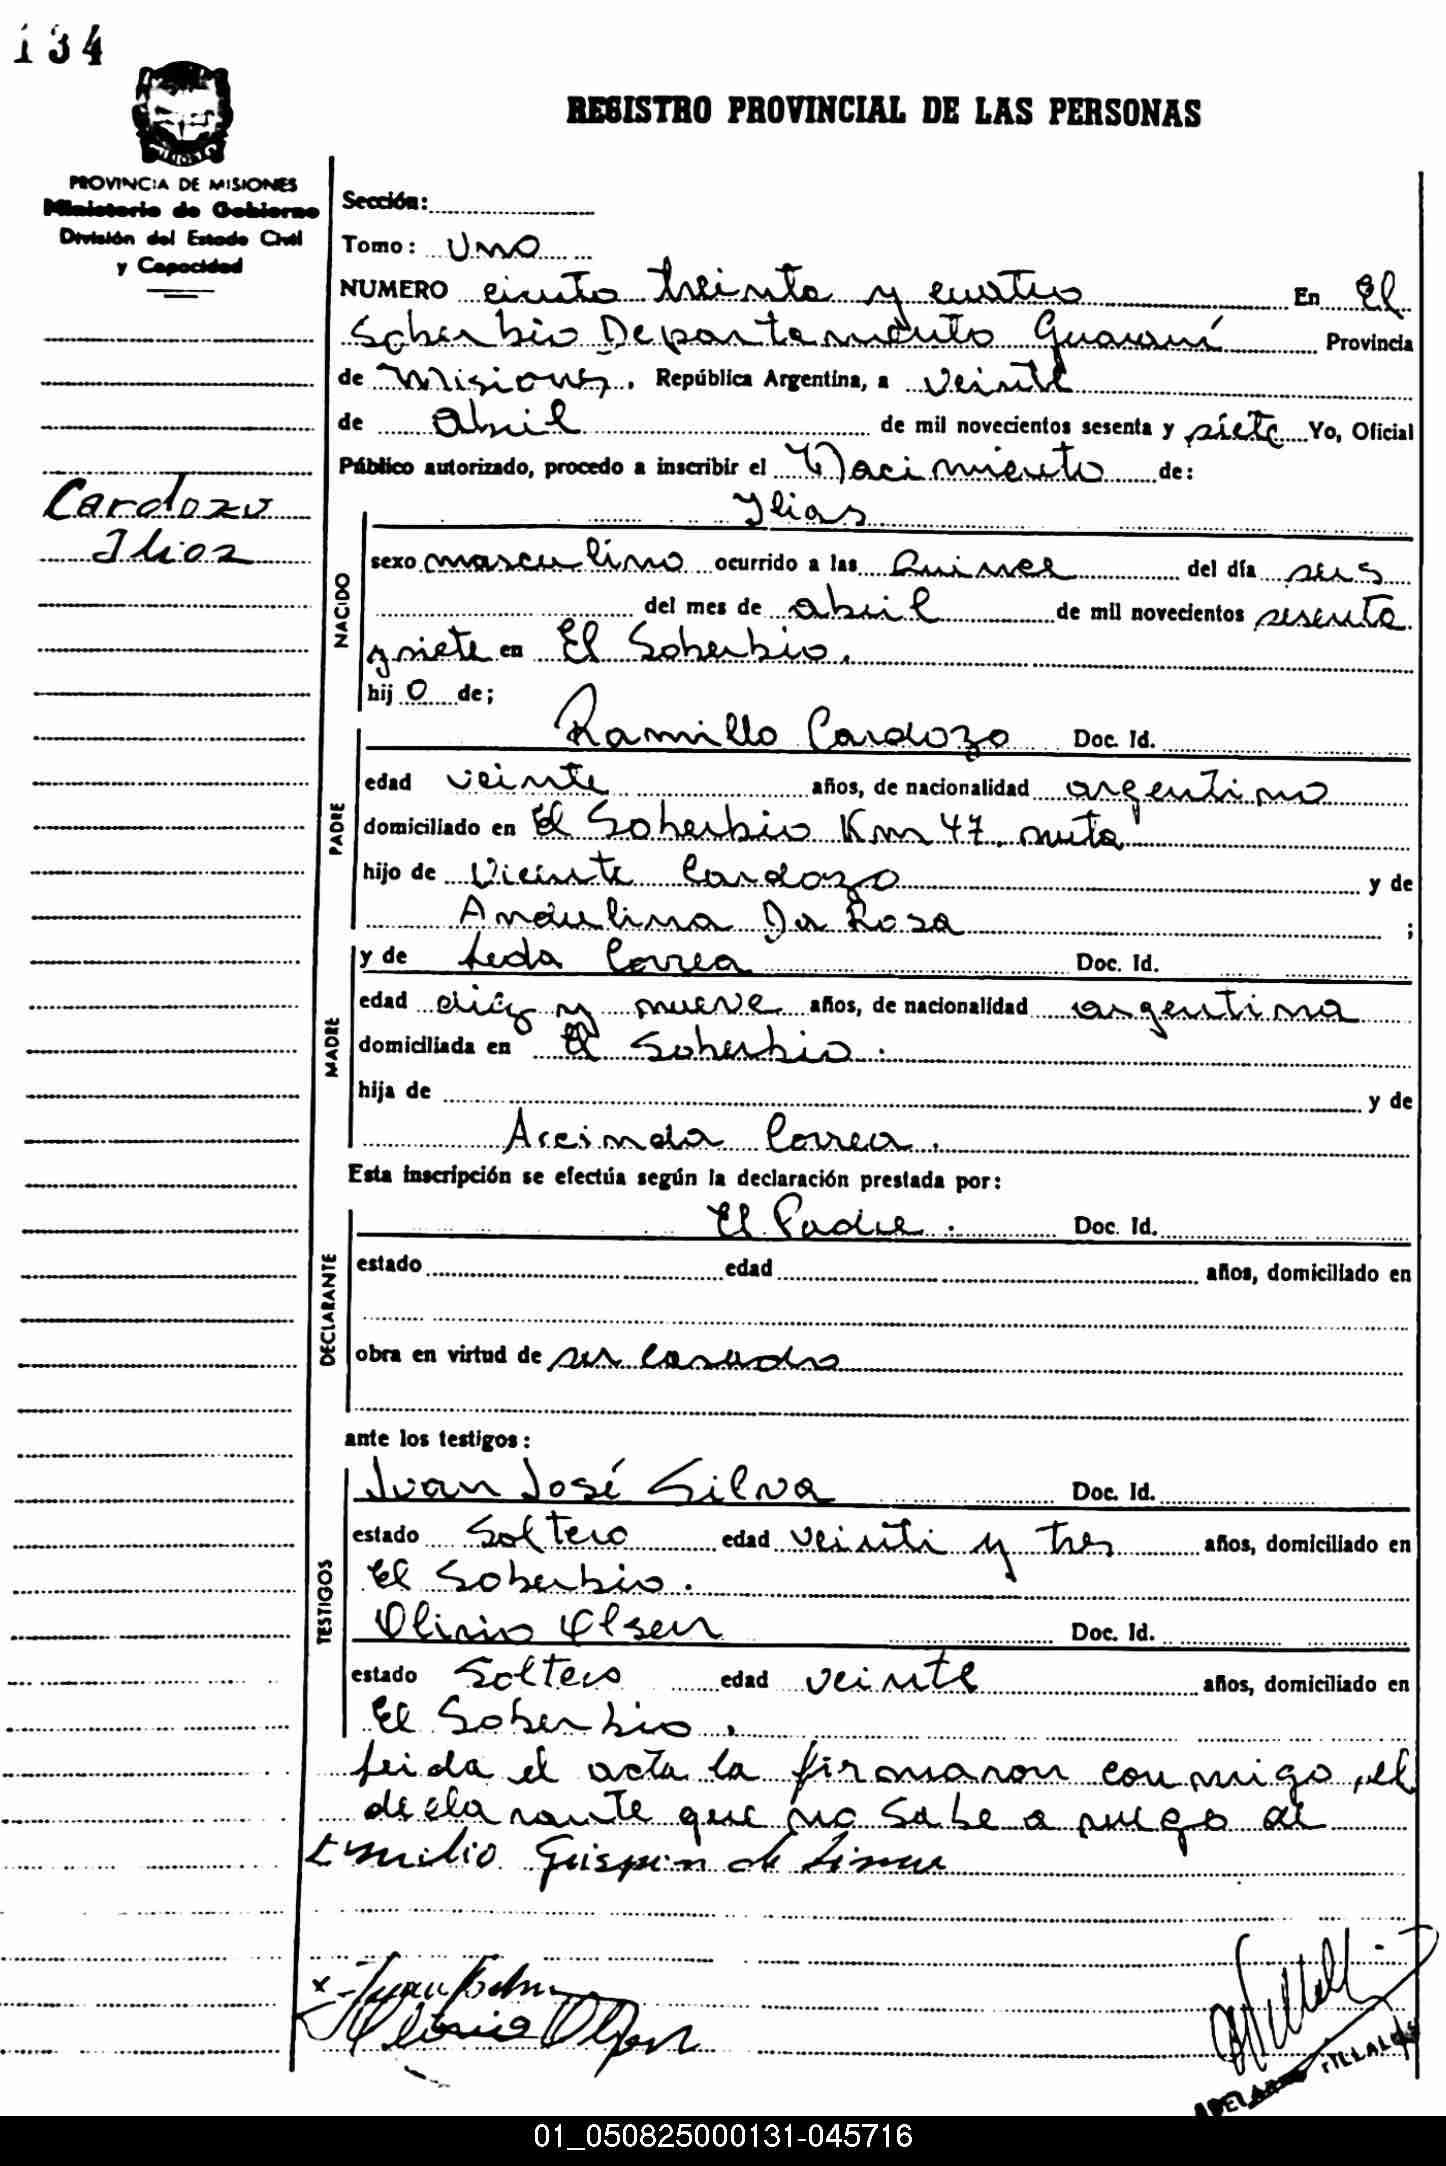 134
REGISTRO PROVINCIAL DE LAS PERSONAS
PROVINCIA DE MISIONES
Ministerio de Gobierno
División del Estado Civil
y Capacidad
Sección:
Tomo: Uno
NUMERO ciento treinta y cuatro En El
Soberbio Departamento Guaraní Provincia
de Misiones, República Argentina, a veinte
de abril de mil novecientos sesenta y siete Yo, Oficial
Público autorizado, procedo a inscribir el Nacimiento de:
Cardozo
Ilias
NACIDO
Ylias
sexo masculino ocurrido a las quince del día seis
del mes de abril de mil novecientos sesenta
y siete en El Soberbio.
hijo de;
PADRE
Ramillo Cardozo Doc. Id.
edad veinte años, de nacionalidad argentino
domiciliado en El Soberbio Km 47. ruta
hijo de Vicente Cardozo y de
Andulina Da Rosa ;
MADRE
y de Leda Correa Doc. Id.
edad diez y nueve años, de nacionalidad argentina
domiciliada en El Soberbio.
hija de y de
Arcinda Correa.
Esta inscripción se efectúa según la declaración prestada por:
DECLARANTE
El Padre. Doc. Id.
estado edad años, domiciliado en
obra en virtud de ser casado
ante los testigos:
TESTIGOS
Juan José Silva Doc. Id.
estado Soltero edad veinti y tres años, domiciliado en
El Soberbio.
Olirio Olsen Doc. Id.
estado Soltero edad veinte años, domiciliado en
El Soberbio.
leida el acta la firmaron conmigo, el
declarante que no sabe a ruego de
Emilio de Lima
Olirio Olsen
01_050825000131-045716